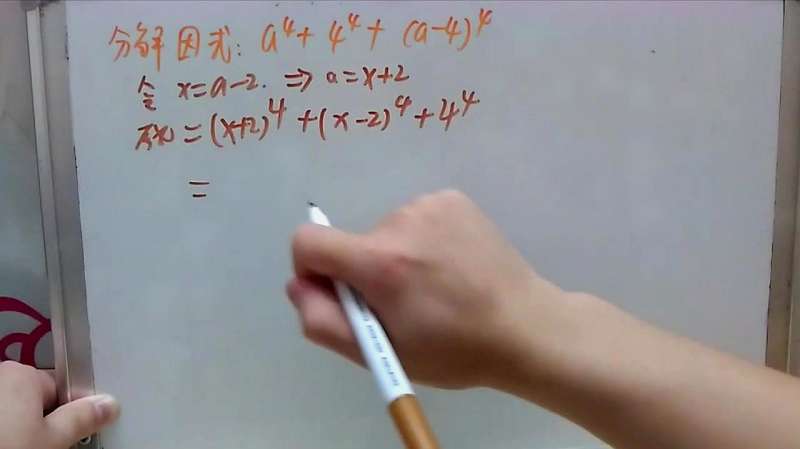 分解因式: a⁴+4⁴+(a-4)⁴
令 x=a-2. ⇒ a=x+2
原式=(x+2)⁴+(x-2)⁴+4⁴
=